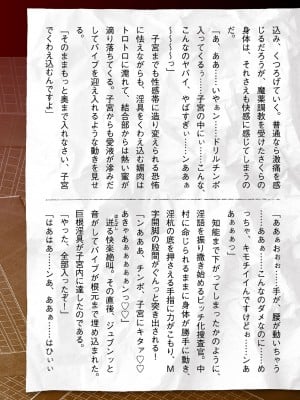 込み、くつろげていく。普通なら激痛を感
じるだろうが、魔薬調教を受けたさくらの
身体は、それさえも快感に感じてしまうの
だ。
「あ、ああ……いやぁン……ドリルチンポ
入ってくるぅ……子宮の中にぃ……こんな、
こんなのヤバイ、やばすぎぃ……ンああぁ
～～～～っ」
　子宮までも性感帯に造り変えられる恐怖
に怯えながらも、淫具をくわえ込む媚肉は
トロトロに濡れて、結合部からは熱い蜜が
滴り落ちてくる。子宮からも愛液が滲みだ
してバイブを迎え入れるような動きを見せ
る。
「そのままもっと奥まで入れなさい、子宮
でくわえ込むんですよ」
「ああぁおぉぉ……手が、腰が動いちゃう
……ああぁ……こんなのダメなのに……め
っちゃ、キモチイイんですけどぉぉ……ンあ
あぁぁぁっ」
　知能まで下がってしまったかのように、
淫語を振り撒き始めるビッチ化捜査官。中
村に命じられるままに身体が勝手に動き、
淫杭の底を押さえる手指に力がこもり、Ｍ
字開脚の股間がぐんっと突き出される！
「ンあああ、チンポ、子宮にキタァ♡♡
あきゃあぁぁぁぁぁンっ♡♡」
　迸る快楽絶叫。その直後、ジュブンッと
音がしてバイブが根元まで埋め込まれた。
巨根淫具が子宮内に達したのである。
「やった、全部入ったぞ！」
「はあはぁ……ンあ、ああぁ……はひぃぃ